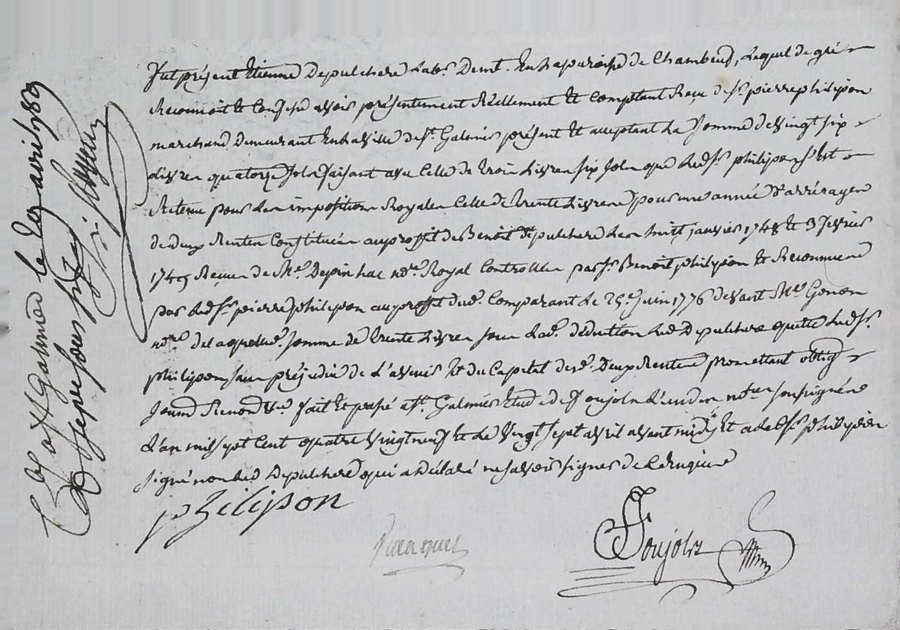 Fut présent Etienne Depulchere Lab.r Dem.t En La paroisse de Chambeud, Lequel de gré
Reconnoit & Confesse avoir présentement Réellement Et Comptant Reçu de S.r pierre philipon
marchand Demeurant En La ville de S.t Galmier présent Et acceptant La Somme de vingt six
Livres quatorze sols faisant avec Celle de trois Livres six sols que Led. S.r philipon s'est
Retenu pour Les impositions Royales Celle de trente Livres pour une année d'arrérages
de deux Rentes Constituées au proffit de Benoit Depulchere Les huit janvier 1748 & 3 fevrier
1749 Reçues de M.e Depinhac no.re Royal Controllées par S.r Benoit philipon & Reconnues
par Led. S.r pierre philipon au proffit dud. Comparant Le 25.e juin 1776 devant M.e Gonon
no.re de Laquelle somme de trente Livres sous Lad. déduction Led Depulchere quitte Led. S.r
philipon sans préjudice de L'avenir Et du Capital desd. Deux Rentes promettant oblig
Soumd Renond &ce fait Et passé a S.t Galmier Etude de Soujols L'un des no.res soussignés
L'an mil sept cent quatre vingt neuf & Le vingt sept avril avant midy Et a Led S.r philipon
signé non Led Depulchere qui a déclaré ne savoir signer de Ce Enquis
philipon
Soujols
a S.t Galmier le avril 1789